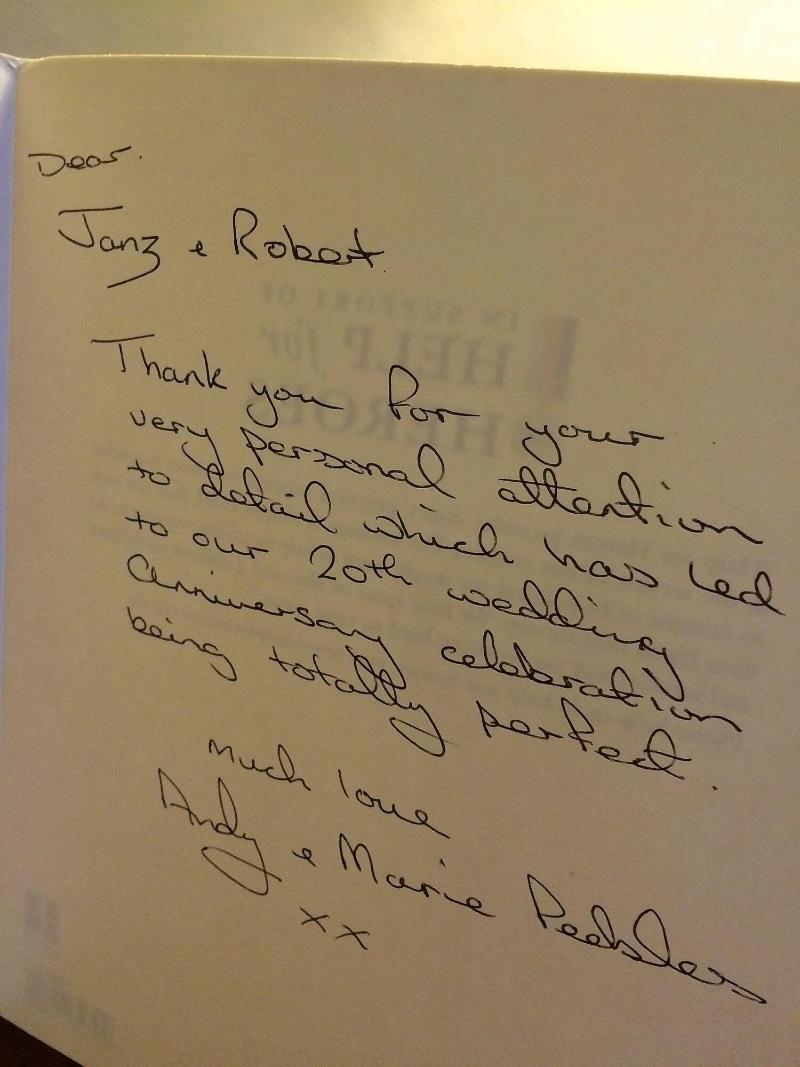 Dear.
Janz e Robert
Thank you for your
very personal attention
to detail which has led
to our 20th wedding
anniversary celebration
being totally perfect.
Much love
Andy e Marie Peebles
xx
IN SUPPORT OF
HELP for
HEROES